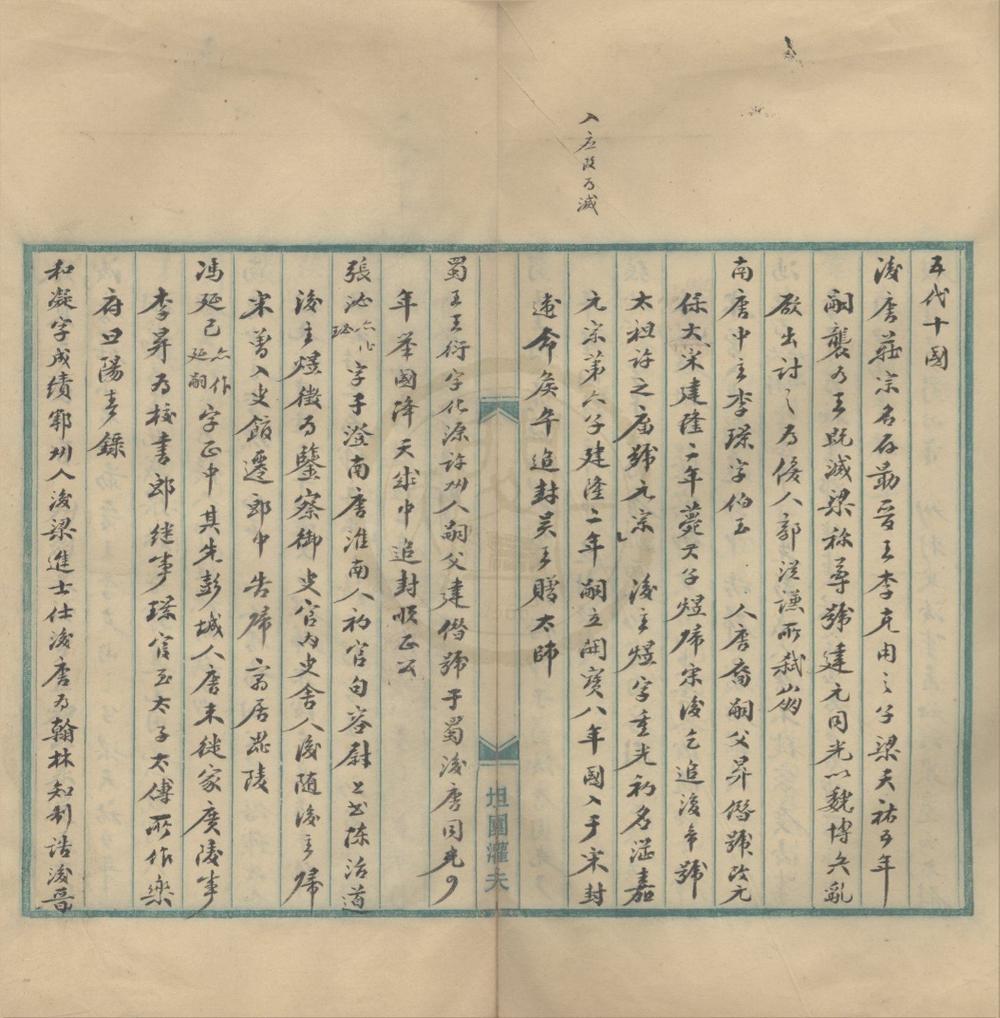 入应改为滅
五代十國
後唐莊宗名存勗晉王李克用之子梁天祐五年
嗣襲为王既滅梁称尊號建元同光以魏博兵亂
啟出討之为優人郭從謙所弑崩
南唐中主李璟字伯玉 人唐裔嗣父昇僭號改元
保大宋建隆二年薨其子煜歸宋後乞追復帝號
太祖許之庙號元宗 後主煜字重光初名從嘉
元宗第六子建隆二年嗣立開寶八年國入于宋封
違命侯卒追封吳王贈太師
蜀王王衍字化源許州人嗣父建僭號于蜀後唐同光四
年舉國降天成中追封順正公
張泌亦作
玭字子澄南唐淮南人初官句容尉上書陳治道
後主煜徵为鑒察御史官内史舍人後随後主歸
宋曾入史館遷郎中告歸家居毘陵
馮延己亦作
延嗣字正中其先彭城人唐末徙家廣陵事
李昇为校書郎继事璟官至太子太傅所作樂
府曰陽春錄
和凝字成績鄆州人後梁進士仕後唐为翰林知制诰後晉
坦園灌夫